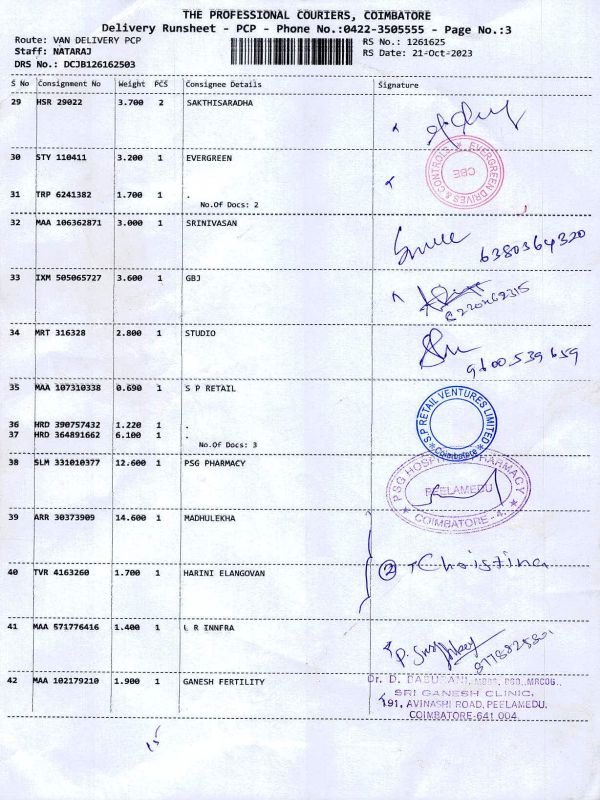 THE PROFESSIONAL COURIERS, COIMBATORE
Delivery Runsheet - PCP - Phone No.:0422-3505555 - Page No.:3
Route: VAN DELIVERY PCP
RS No.: 1261625
Staff: NATARAJ
RS Date: 21-Oct-2023
DRS No.: DCJB126162503
S No Consignment No Weight PCS Consignee Details Signature
29 HSR 29022 3.700 2 SAKTHISARADHA
30 STY 110411 3.200 1 EVERGREEN
EVERGREEN DRIVES & CONTROLS
CBE
31 TRP 6241382 1.700 1 .
No.Of Docs: 2
32 MAA 106362871 3.000 1 SRINIVASAN
6380364320
33 IXM 505065727 3.600 1 GBJ
34 MRT 316328 2.800 1 STUDIO
9600539659
35 MAA 107310338 0.690 1 S P RETAIL
S P RETAIL VENTURES LIMITED
Coimbatore
36 HRD 390757432 1.220 1 .
37 HRD 364891662 6.100 1 .
No.Of Docs: 3
38 SLM 331010377 12.600 1 PSG PHARMACY
PSG HOSPITAL PHARMACY
PEELAMEDU
COIMBATORE - 4.
39 ARR 30373909 14.600 1 MADHULEKHA
2 Christina
40 TVR 4163260 1.700 1 HARINI ELANGOVAN
41 MAA 571776416 1.400 1 L R INNFRA
42 MAA 102179210 1.900 1 GANESH FERTILITY
SRI GANESH CLINIC,
191, AVINASHI ROAD, PEELAMEDU,
COIMBATORE-641 004.
15